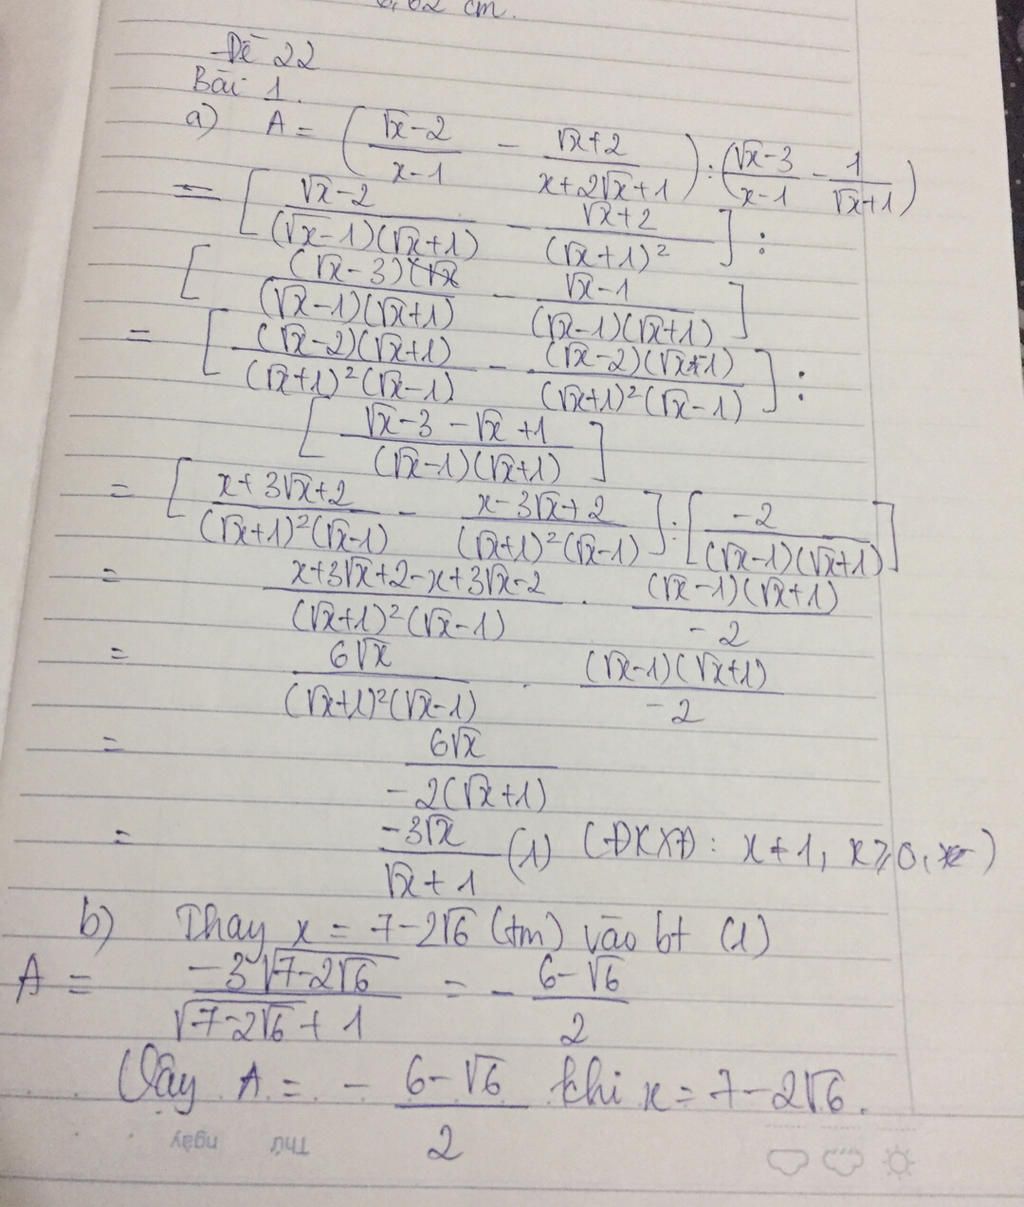 cm.
Đề 22
Bài 1.
a) A = ( (√x-2)/(x-1) - (√x+2)/(x+2√x+1) ) : ( (√x-3)/(x-1) - 1/(√x+1) )
= [ (√x-2)/((√x-1)(√x+1)) - (√x+2)/((√x+1)²) ] :
[ (√x-3)/((√x-1)(√x+1)) - (√x-1)/((√x-1)(√x+1)) ]
= [ (√x-2)(√x+1)/((√x+1)²(√x-1)) - (√x-2)(√x+1)/((√x+1)²(√x-1)) ] :
[ (√x-3-√x+1)/((√x-1)(√x+1)) ]
= [ (x+3√x+2)/((√x+1)²(√x-1)) - (x-3√x+2)/((√x+1)²(√x-1)) ] : [ -2/((√x-1)(√x+1)) ]
= (x+3√x+2-x+3√x-2)/((√x+1)²(√x-1)) . (√x-1)(√x+1)/-2
= 6√x/((√x+1)²(√x-1)) . (√x-1)(√x+1)/-2
= 6√x/(-2(√x+1))
= -3√x/(√x+1) (1) (ĐKXĐ: x≠1, x≥0,)
b) Thay x = 7-2√6 (tm) vào bt (1)
A = -3√(7-2√6)/(√(7-2√6)+1) = - (6-√6)/2
Vậy A = - (6-√6)/2 khi x = 7-2√6.
Thứ ngày